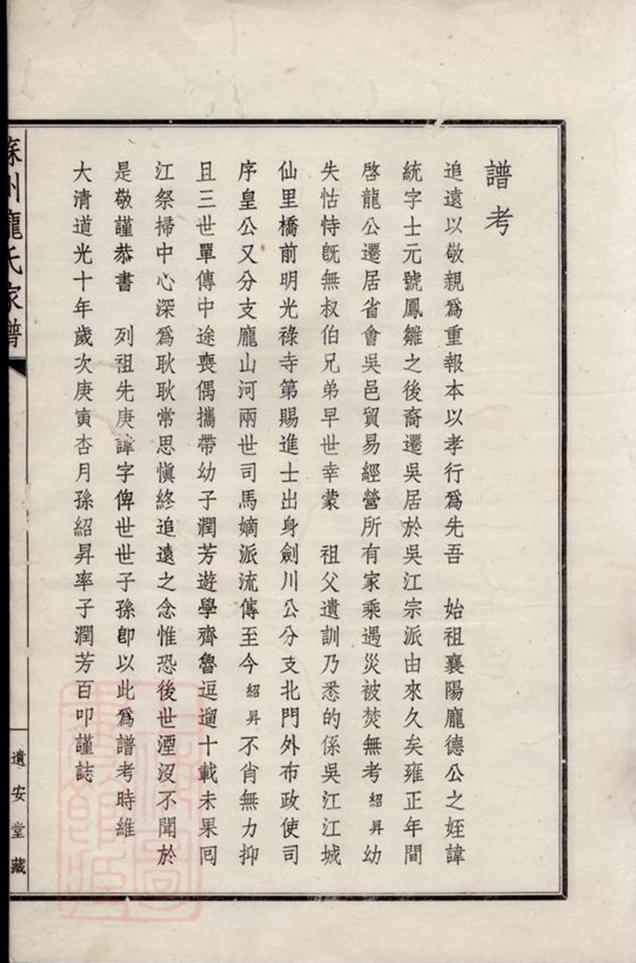 譜考
追遠以敬親爲重報本以孝行爲先吾　始祖襄陽龐德公之姪諱
統字士元號鳳雛之後裔遷吳居於吳江宗派由來久矣雍正年間
啓龍公遷居省會吳邑貿易經營所有家乘遇災被焚無考紹昇幼
失怙恃旣無叔伯兄弟早世幸蒙　祖父遺訓乃悉的係吳江江城
仙里橋前明光祿寺第賜進士出身劍川公分支北門外布政使司
序皇公又分支龐山河兩世司馬嫡派流傳至今紹昇不肖無力抑
且三世單傳中途喪偶攜帶幼子潤芳遊學齊魯逗遛十載未果囘
江祭掃中心深爲耿耿常思愼終追遠之念惟恐後世湮沒不聞於
是敬謹恭書　列祖先庚諱字俾世世子孫卽以此爲譜考時維
大清道光十年歲次庚寅杏月孫紹昇率子潤芳百叩謹誌
蘇州龐氏家譜
遺安堂藏